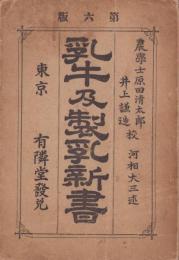 第六版
農學士原田清太郎
井上謙造 校 河相大三述
乳牛及製乳新書
東京 有隣堂發兌